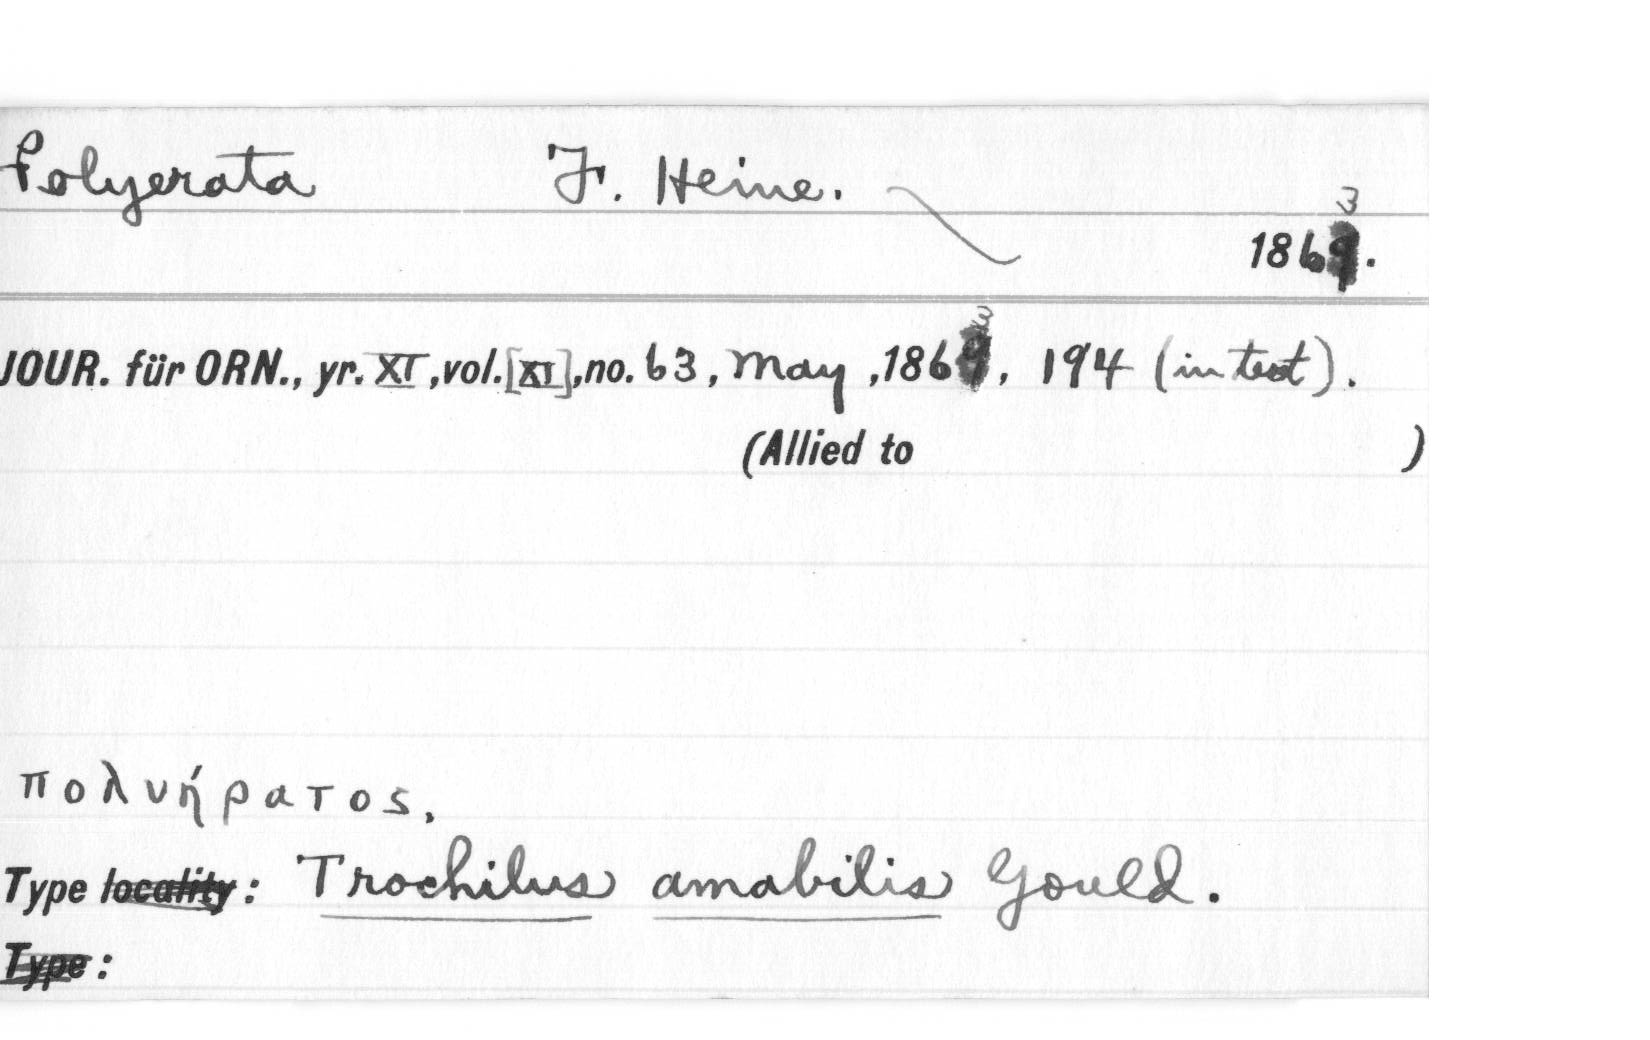 Polyerata F. Heine.
3
1869.
3
JOUR. für ORN., yr. XI, vol. [XI], no. 63, May, 1869, 194 (in text).
(Allied to )
πολυήρατος,
Type locality: Trochilus amabilis Gould.
Type: